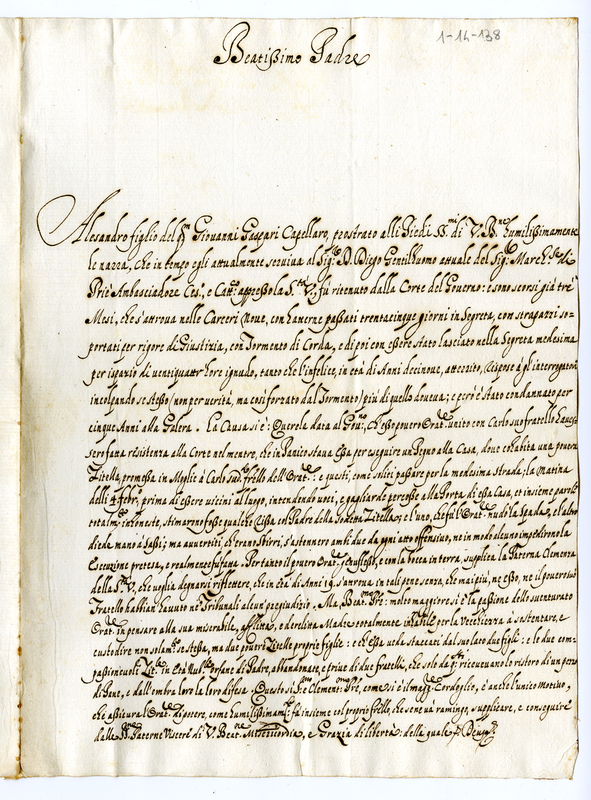 1-14-138
Beatissimo Padre
Alesandro figlio del qm Giovanni Gaspari Capellaro, prostrato alli Piedi SS.mi di V. B.ne humilissimamente
le narra, che in tempo egli attualmente serviva al Sig.re D. Diego Gentilhuomo attuale del Sig.re March.se di
Priè Ambasciadore Ces.o, e Catt.o appresso la S.tà V., fù ritenuto dalla Corte del Governo: e sono scorsi già trè
Mesi, che s'attrova nelle Carceri Nove, con haverne passati trentacinque giorni in Segreta, con strapazzi so-
portati per rigore di Giustizia, con Tormento di Corda, e di poi con essere stato lasciato nella Segreta medesima
per ispazio di ventiquattr'hore ignudo, tanto che l'infelice, in età di Anni decinove, atterrito, rispose à gl'interrogatorij
incolpando se stesso (non per verità, ma così forzato dal Tormento) più di quello doveva; e però è stato condannato per
cinque Anni alla Galera. La Causa si è: Querela data al Gov.no, ch'esso povero Orat.e unito con Carlo suo fratello havesse-
sero fatta resistenza alla Corte nel mentre, che in Panico stava essa per eseguire un Pegno alla Casa, dove cohabita una povera
Zitella, promessa in Moglie à Carlo sud.o fr̃ello dell'Orat.e: e questi, come soliti passare per la medesima Strada; la Matina
delli 4 Febr.o, prima di essere vicini al luogo, intendendo voci, e gagliarde percosse alla Porta di essa Casa, et insieme parole
totalm.te inhoneste, stimarono fosse qualche Rissa col Padre della sodetta Zitella; e l'uno, che fù l'Orat.e nudò la Spada, e l'altro
diede mano à Sassi; ma avvertiti, ch'erano Sbirri, s'astennero ambi due da ogni atto offensivo, ne in modo alcuno impedirono la
Esecuzione pretesa, e realmente fu fatta. Pertanto il povero Orat.e genuflesso, e con la bocca in terra, supplica la Paterna Clemenza
della S.tà V., che voglia degnarsi riflettere, che in età di Anni 19 s'attrova in tali penesenza, che mai più, ne esso, ne il povero suo
Fratello habbian havuto ne Tribunali alcun pregiudizio. Ma, Beat.mo Pre: molto maggiore si è la passione dello sventurato
Orat.e in pensare alla sua miserabile, afflitta, e derelitta Madre totalmente inhabile per la Vecchiezza à sostentare, e
custodire non solam.te se stessa, ma due poveri Zitelle proprie figlie: ch'essa veda staccati dal suo lato due figli: e le due com-
passionevoli Zit.le in età Nub.le Orfane di Padre, abbandonate, e prive di due fratelli, che solo da q.sti ricevevano lo ristoro di un pezzo
di Pane, e dall'ombra loro la loro difesa. Questo si è Clement.mo Pre, come si è il magg.re Cordoglio, è anch'l'unico motivo,
che assicura l'Orat.e di potere, come humilissimam.te fà insieme col proprio fr̃ello, che se ne và ramingo, supplicare, e conseguire
dalle SS.me Paterne Viscere di V. Beat.ne Misericordia, e Grazia di libertà: della quale &c. Deus &c.